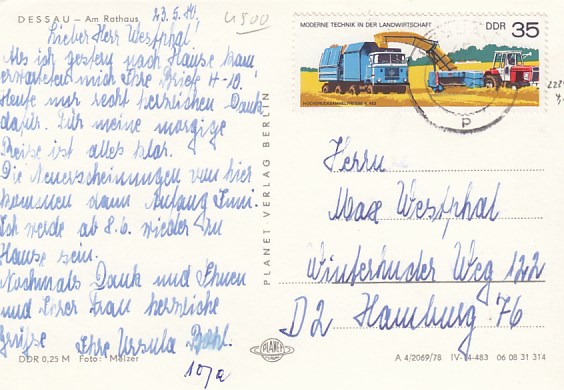 DESSAU – Am Rathaus
23.5.80.
4500
Lieber Herr Westphal!
Als ich gestern nach Hause kam
erwarteten mich Ihre Briefe 4-10.
Heute nur recht herzlichen Dank
dafür. Für meine morgige
Reise ist alles klar.
Die Neuerscheinungen von hier
kommen dann Anfang Juni.
Ich werde ab 8.6. wieder zu
Hause sein.
Nochmals Dank und Ihnen
und Ihrer Frau herzliche
Grüße Ihre Ursula
107a
DDR 0,25 M Foto: Mälzer
PLANET VERLAG BERLIN
PLANET
MODERNE TECHNIK IN DER LANDWIRTSCHAFT
DDR 35
P
Herrn
Max Westphal
Winterhuder Weg 122
D2 Hamburg 76
A 4/2069/78 IV-14-483 06 08 31 314